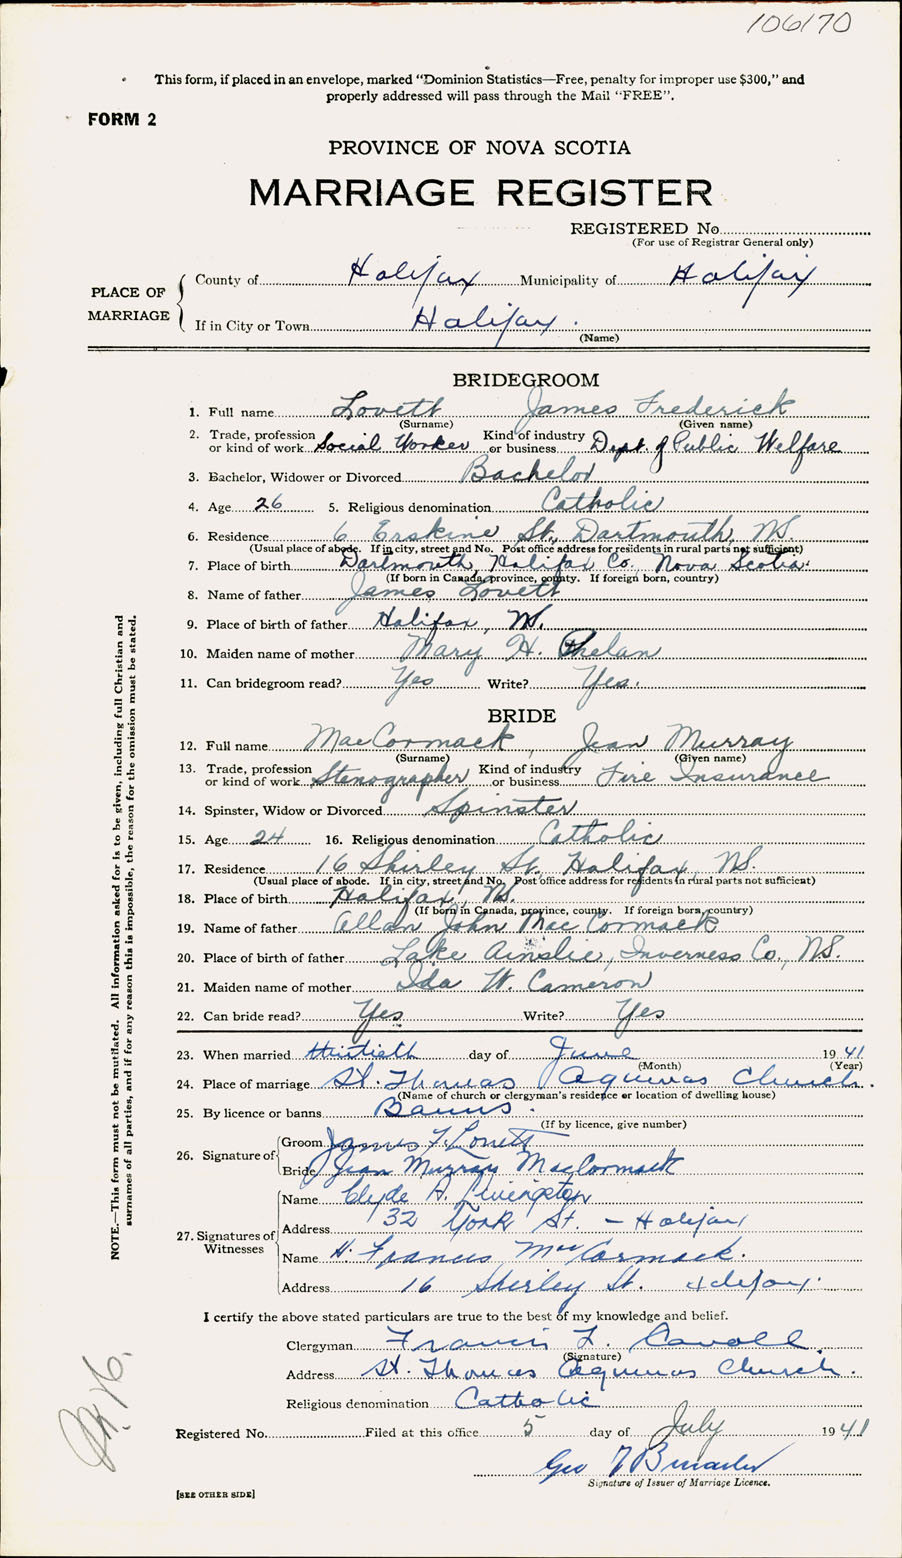 106170
This form, if placed in an envelope, marked "Dominion Statistics—Free, penalty for improper use $300," and
properly addressed will pass through the Mail "FREE".
FORM 2
PROVINCE OF NOVA SCOTIA
MARRIAGE REGISTER
REGISTERED No.
(For use of Registrar General only)
PLACE OF MARRIAGE
County of Halifax Municipality of Halifax
If in City or Town Halifax.
(Name)
BRIDEGROOM
1. Full name Lovett James Frederick
(Surname) (Given name)
2. Trade, profession or kind of work Social Worker Kind of industry or business Dept. of Public Welfare
3. Bachelor, Widower or Divorced Bachelor
4. Age 26 5. Religious denomination Catholic
6. Residence 6 Erskine St., Dartmouth, N.S.
(Usual place of abode. If in city, street and No. Post office address for residents in rural parts not sufficient)
7. Place of birth Dartmouth, Halifax Co., Nova Scotia.
(If born in Canada, province, county. If foreign born, country)
8. Name of father James Lovett
9. Place of birth of father Halifax, N.S.
10. Maiden name of mother Mary H. Phelan
11. Can bridegroom read? Yes Write? Yes.
BRIDE
12. Full name MacCormack, Jean Murray
(Surname) (Given name)
13. Trade, profession or kind of work Stenographer Kind of industry or business Fire Insurance
14. Spinster, Widow or Divorced Spinster
15. Age 24 16. Religious denomination Catholic
17. Residence 16 Shirley St. Halifax, N.S.
(Usual place of abode. If in city, street and No. Post office address for residents in rural parts not sufficient)
18. Place of birth Halifax, N.S.
(If born in Canada, province, county. If foreign born, country)
19. Name of father Allan John MacCormack
20. Place of birth of father Lake Ainslie, Inverness Co., N.S.
21. Maiden name of mother Ida W. Cameron
22. Can bride read? Yes Write? Yes
23. When married thirtieth day of June 1941
(Month) (Year)
24. Place of marriage St. Thomas Aquinas Church.
(Name of church or clergyman's residence or location of dwelling house)
25. By licence or banns Banns.
(If by licence, give number)
26. Signature of Groom James F. Lovett
Bride Jean Murray MacCormack
27. Signatures of Witnesses
Name Clyde A. Livingston
Address 32 York St. - Halifax
Name H. Francis MacCormack.
Address 16 Shirley St. Halifax.
I certify the above stated particulars are true to the best of my knowledge and belief.
Clergyman Francis L. Carroll.
(Signature)
Address St. Thomas Aquinas Church.
Religious denomination Catholic
Registered No. Filed at this office 5 day of July 1941
Geo
Signature of Issuer of Marriage Licence.
[SEE OTHER SIDE]
NOTE.—This form must not be mutilated. All information asked for is to be given, including full Christian and
surnames of all parties, and if for any reason this is impossible, the reason for the omission must be stated.